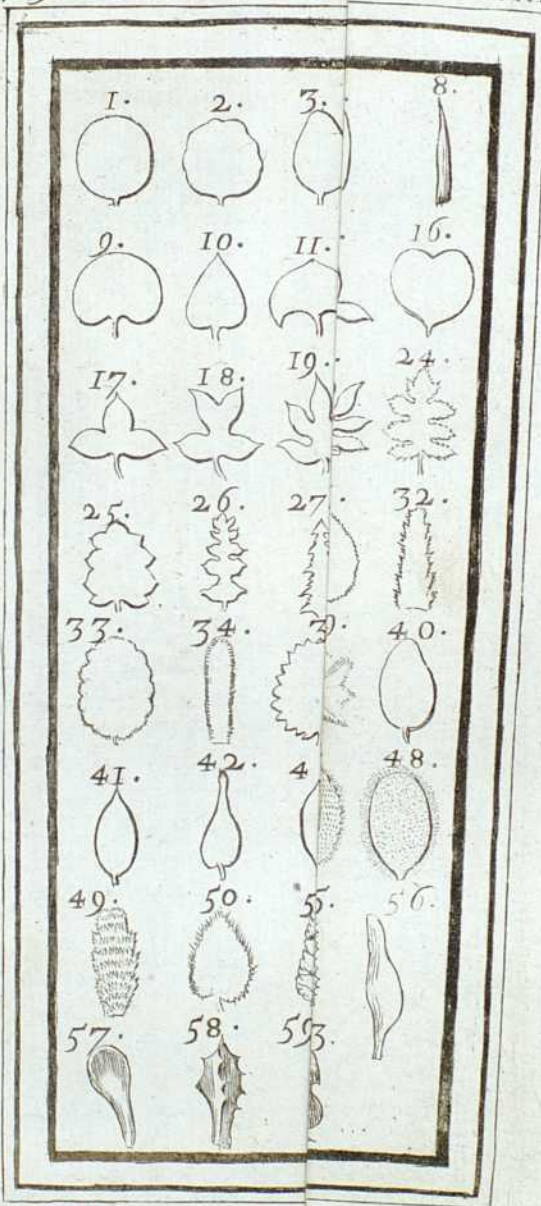 1. 2. 3. 8.
9. 10. 11. 16.
17. 18. 19. 24.
25. 26. 27. 32.
33. 34. 3 9. 40.
41. 42. 4 48.
49. 50. 5 56.
57. 58. 59 3.